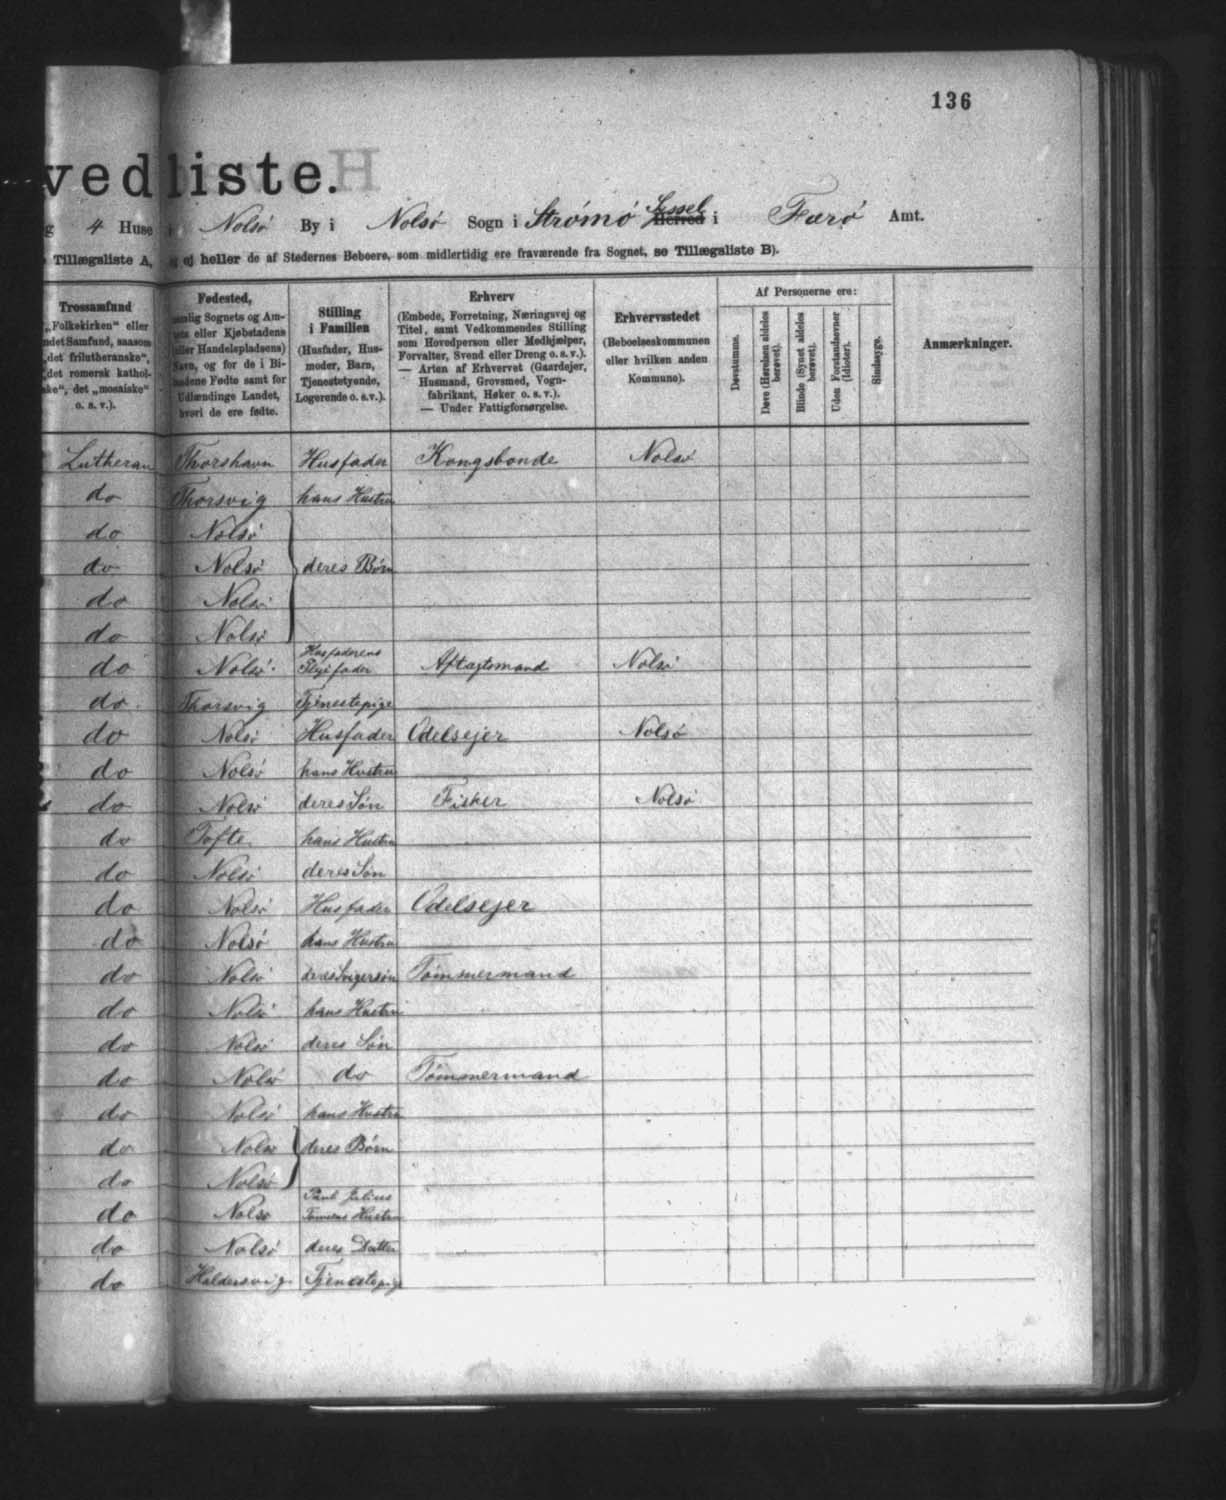 136
vedliste.
g 4 Huse i Nolsö By i Nolsö Sogn i Strömö Syssel Herred i Færö Amt.
Tillægsliste A, og ej heller de af Stedernes Beboere, som midlertidig ere fraværende fra Sognet, se Tillægsliste B).
Trossamfund
„Folkekirken“ eller
ndet Samfund, saasom
„det frilutheranske“,
„det romersk kathol-
ske“, det „mosaiske“
o. s. v.).
Fødested,
nemlig Sognets og Am-
tets eller Kjøbstadens
(eller Handelspladsens)
Navn, og for de i Bi-
landene Fødte samt for
Udlændinge Landet,
hvori de ere fødte.
Stilling
i Familien
(Husfader, Hus-
moder, Barn,
Tjenestetyende,
Logerende o. s. v.).
Erhverv
(Embede, Forretning, Næringsvej og
Titel, samt Vedkommendes Stilling
som Hovedperson eller Medhjælper,
Forvalter, Svend eller Dreng o. s. v.).
— Arten af Erhvervet (Gaardejer,
Husmand, Grovsmed, Vogn-
fabrikant, Høker o. s. v.).
— Under Fattigforsørgelse.
Erhvervsstedet
(Beboelseskommunen
eller hvilken anden
Kommune).
Af Personerne ere:
Døvstumme.
Døve (Hørelsen aldeles
berøvet).
Blinde (Synet aldeles
berøvet).
Uden Forstandsevner
(Idioter).
Sindssyge.
Anmærkninger.
Lutheran Thorshavn Husfader Kongsbonde Nolsö
do Thorsvig hans Hustru
do Nolsö
do Nolsö deres Børn
do Nolsö
do Nolsö
do Nolsö Husfaderens Plejefader Aftagtsmand Nolsö
do Thorsvig Tjenestepige
do Nolsö Husfader Odelsejer Nolsö
do Nolsö hans Hustru
do Nolsö deres Søn Fisker Nolsö
do Tofte hans Hustru
do Nolsö deres Søn
do Nolsö Husfader Odelsejer
do Nolsö hans Hustru
do Nolsö deres Svigersøn Tömmermand
do Nolsö hans Hustru
do Nolsö deres Søn
do Nolsö do Tömmermand
do Nolsö hans Hustru
do Nolsö deres Børn
do Nolsö
do Nolsö Poul Julius Hustru
do Nolsö deres Datter
do Haldersvig Tjenestepige